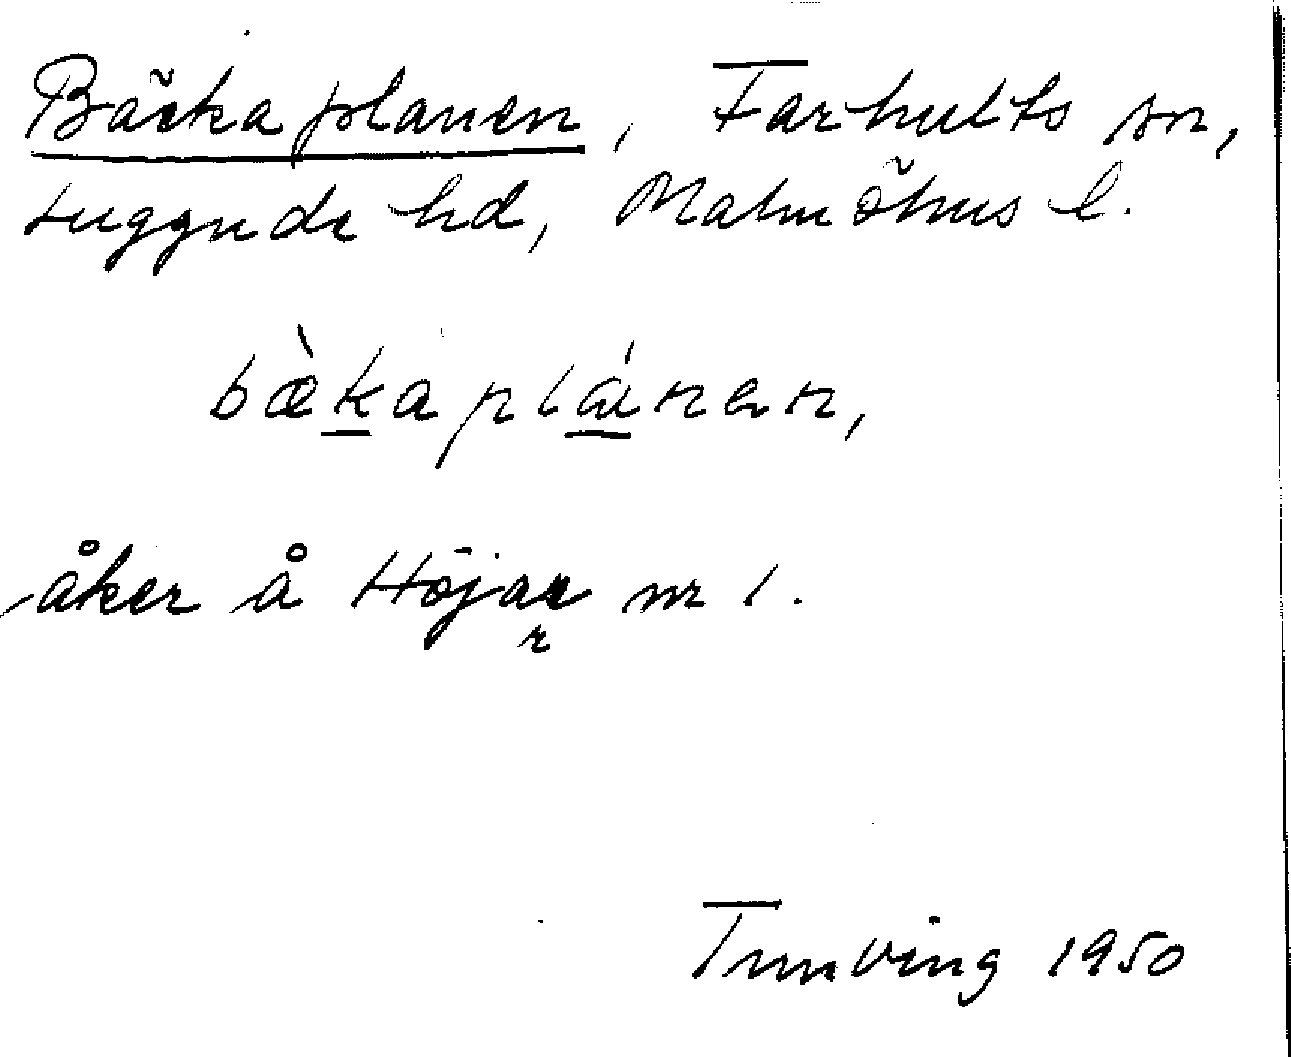 Bäckaplanen, Farhults sn,
Luggude hd, Malmöhus l.
bækaplánen,
åker å Höjar nr 1.
Tunving 1950